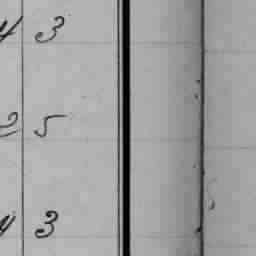 4 3
2 5
4 3